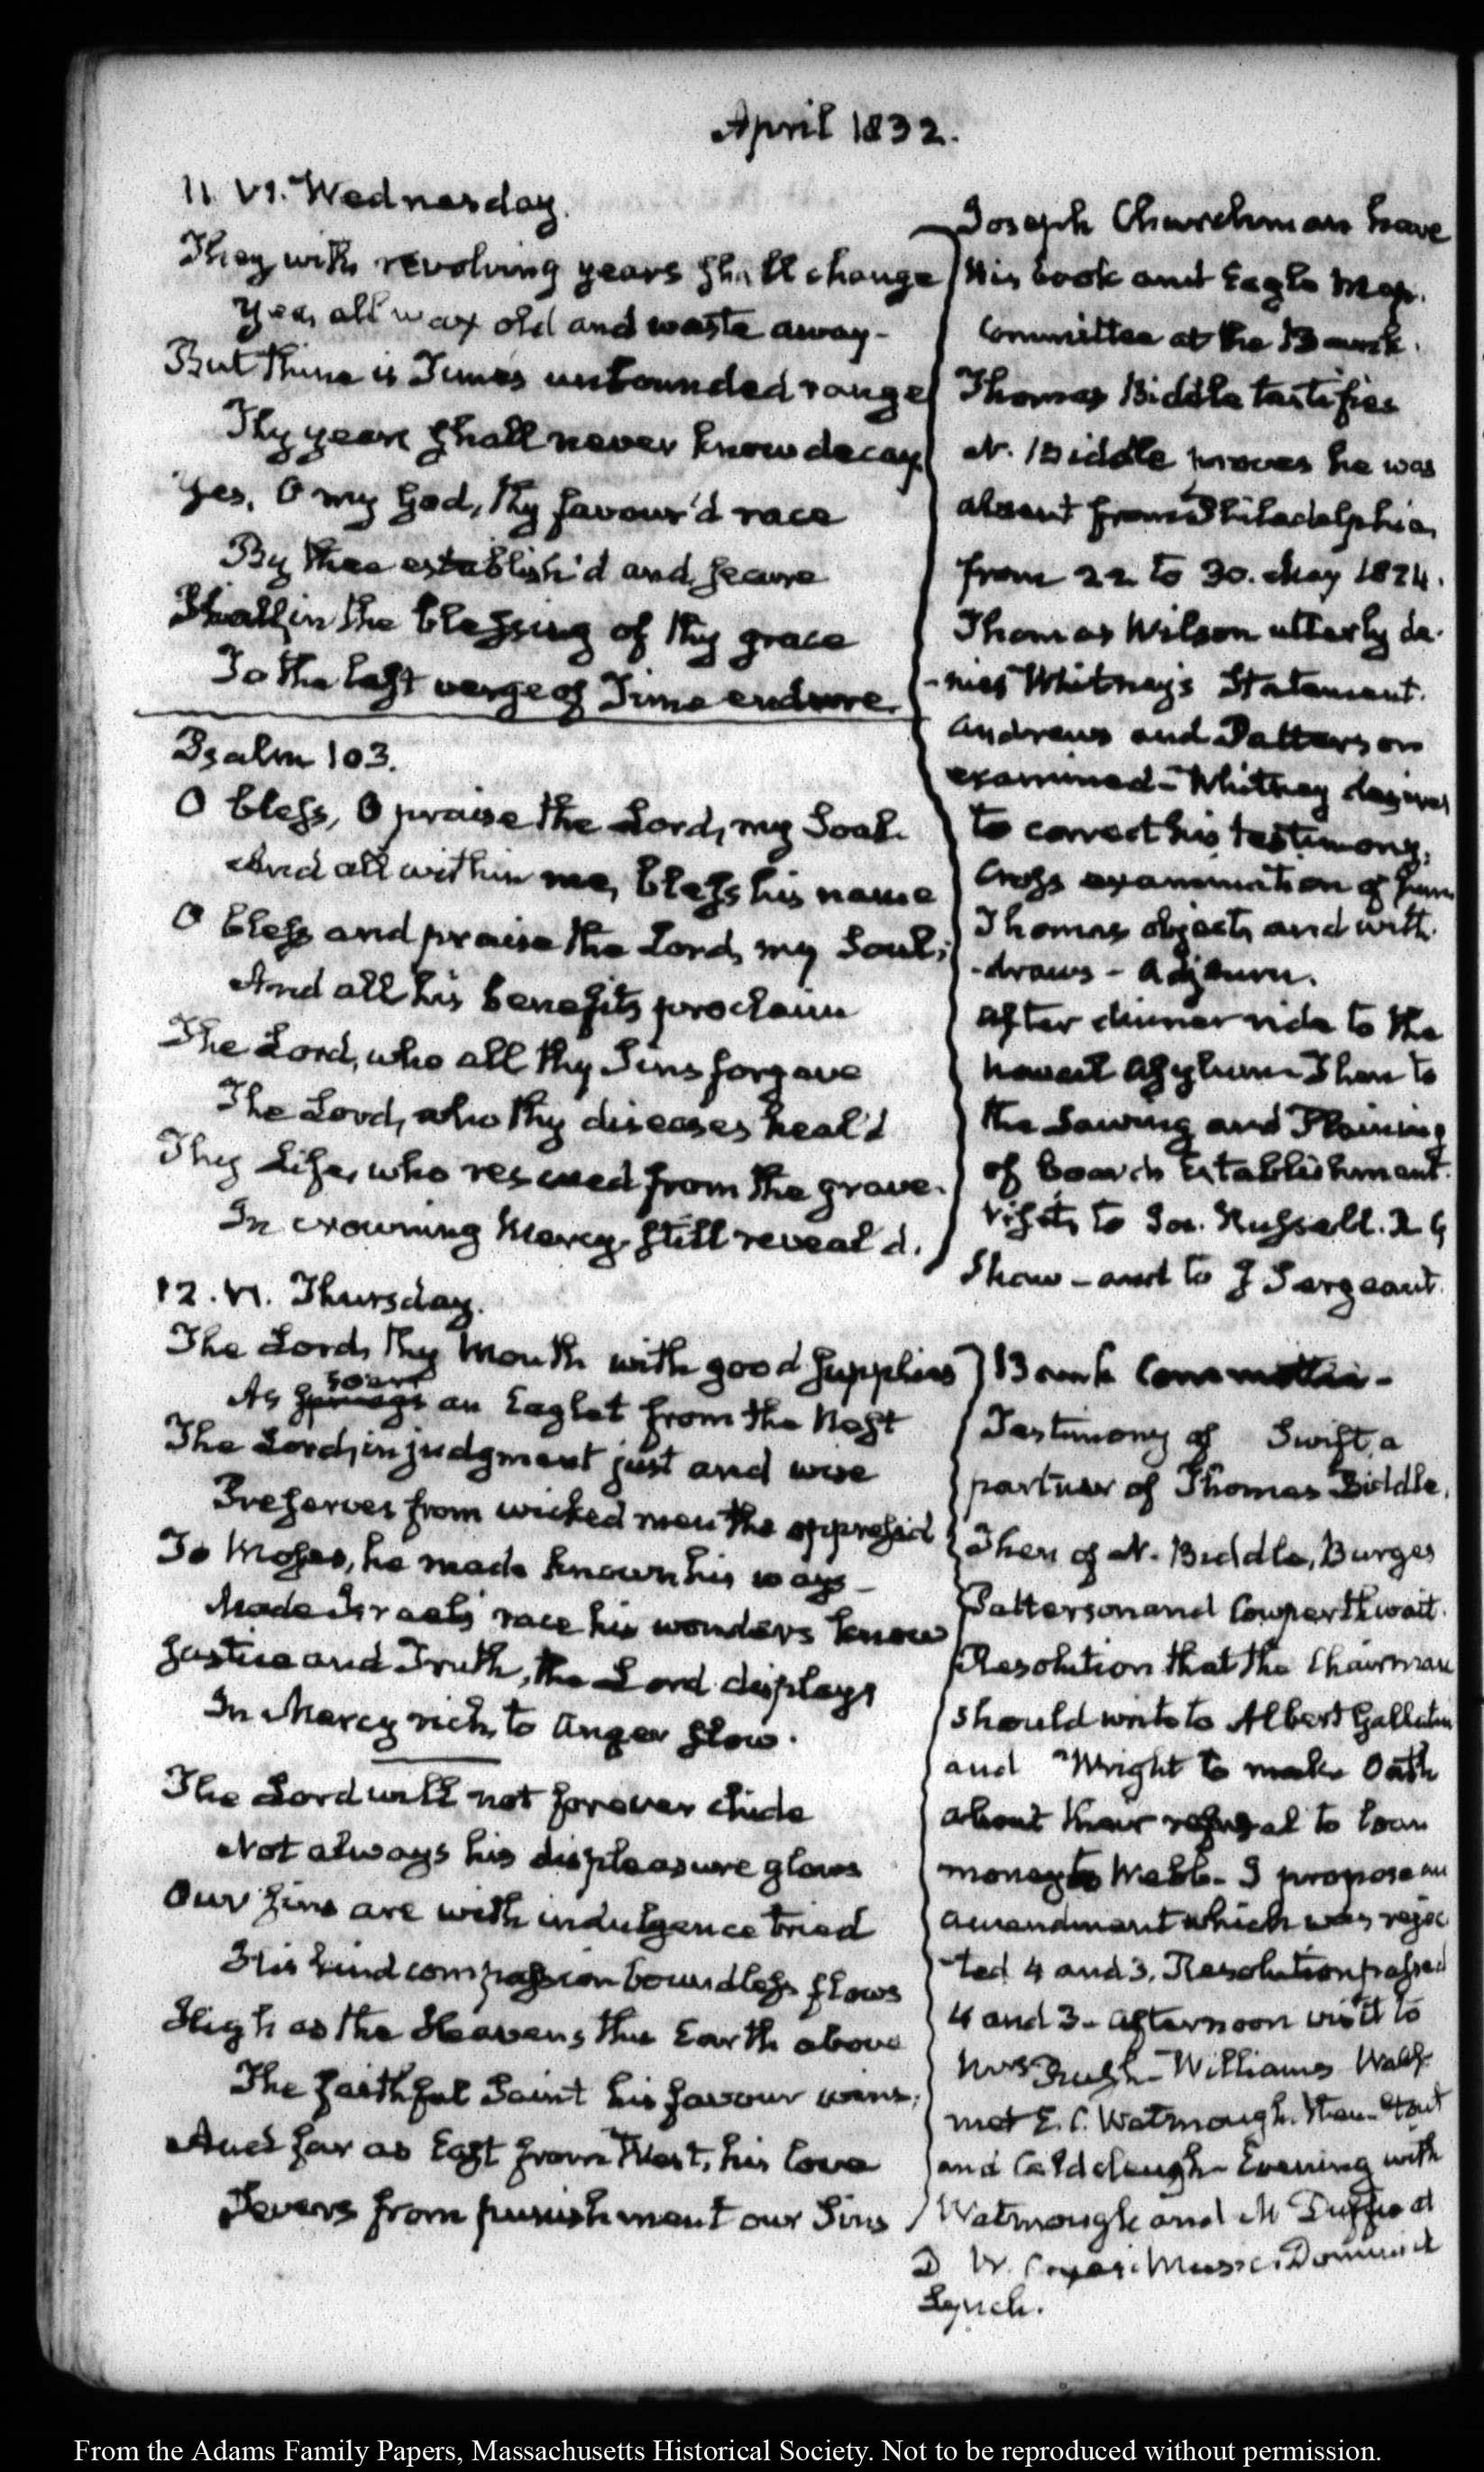 April 1832.
11. VI. Wednesday.
They with revolving years shall change
Yea, all wax old and waste away-
But thine is Time's unbounded range
Thy years shall never know decay.
Yes, O my God, thy favour'd race
By thee establish'd and secure
Shall, in the blessing of thy grace
To the last verge of Time endure.
Psalm 103.
O bless, O praise the Lord, my Soul.
And all within me, bless his name
O bless and praise the Lord, my Soul;
And all his benefits proclaim
The Lord, who all thy Sins forgave
The Lord, who thy diseases heal'd
Thy Life, who rescued from the grave.
In crowning Mercy still reveal'd.
Joseph Churchman have
his book and Eagle Map.
Committee at the Bank.
Thomas Biddle testifies
N. Biddle proves he was
absent from Philadelphia,
from 22 to 30. May 1824.
Thomas Wilson utterly de-
-nies Whitney's Statement.
Andrews and Patterson
examined - Whitney desires
to correct his testimony.
Cross examination of him
Thomas objects and with-
-draws - Adjourn.
After dinner ride to the
Asylum - Then to
the Sawing and Plaining
of boards Establishment.
Visits to Jos. Russell. R G
Shaw - and to J Sergeant.
12. VI. Thursday.
The Lord, thy Mouth with good supplies
soars
As springs an Eaglet from the Nest
The Lord, in judgment just and wise
Preserves from wicked men the oppress'd
To Moses, he made known his ways -
Made Israel's race his wonders know
Justice and Truth, the Lord displays
In Mercy rich, to Anger slow.
The Lord will not forever chide
Not always his displeasure glows
Our Sins are with indulgence tried
His kind compassion boundless flows
High as the Heavens, the Earth above
The faithful Saint his favour wins;
And far as East from West, his love
Severs from punishment our Sins
Bank Committee -
Testimony of Swift, a
partner of Thomas Biddle.
Then of N. Biddle, Burges
Patterson and Cowperthwait.
Resolution that the Chairman
should write to Albert Gallatin
and Wright to make Oath
about their refusal to loan
money to Webb - I propose an
amendment which was rejec
ted 4 and 3. Resolution passed
4 and 3 - Afternoon visit to
Mrs Rush - Williams Walk
met E. C. Watmough. then
and Caldcleugh - Evening with
Watmough and McDuffie at
D W. Coxe's. Music. Dominick
Lynch.
From the Adams Family Papers, Massachusetts Historical Society. Not to be reproduced without permission.